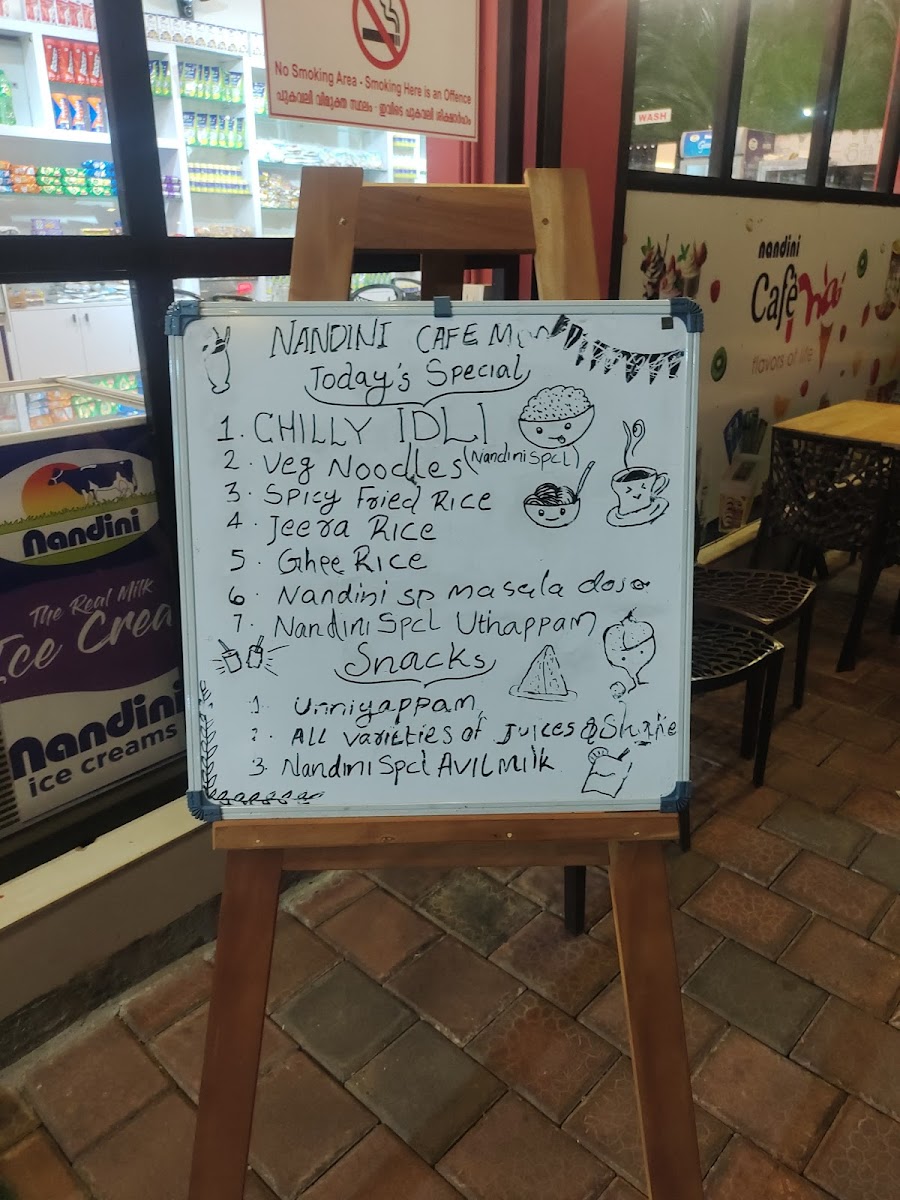 No Smoking Area - Smoking Here is an Offence
പുകവലി വിമുക്ത സ്ഥലം - ഇവിടെ പുകവലി ശിക്ഷാർഹം
WASH
nandini
Cafè
flavors of life
NANDINI CAFE
Today's Special
1. CHILLY IDLI
2. Veg Noodles (Nandini Spcl)
3. Spicy Fried Rice
4. Jeera Rice
5. Ghee Rice
6. Nandini sp masala dosa
7. Nandini Spcl Uthappam
Snacks
1. Unniyappam
2. All varieties of Juices & Shake
3. Nandini Spcl AVIL Milk
Nandini
The Real Milk
Ice Crea
Nandini
ice creams